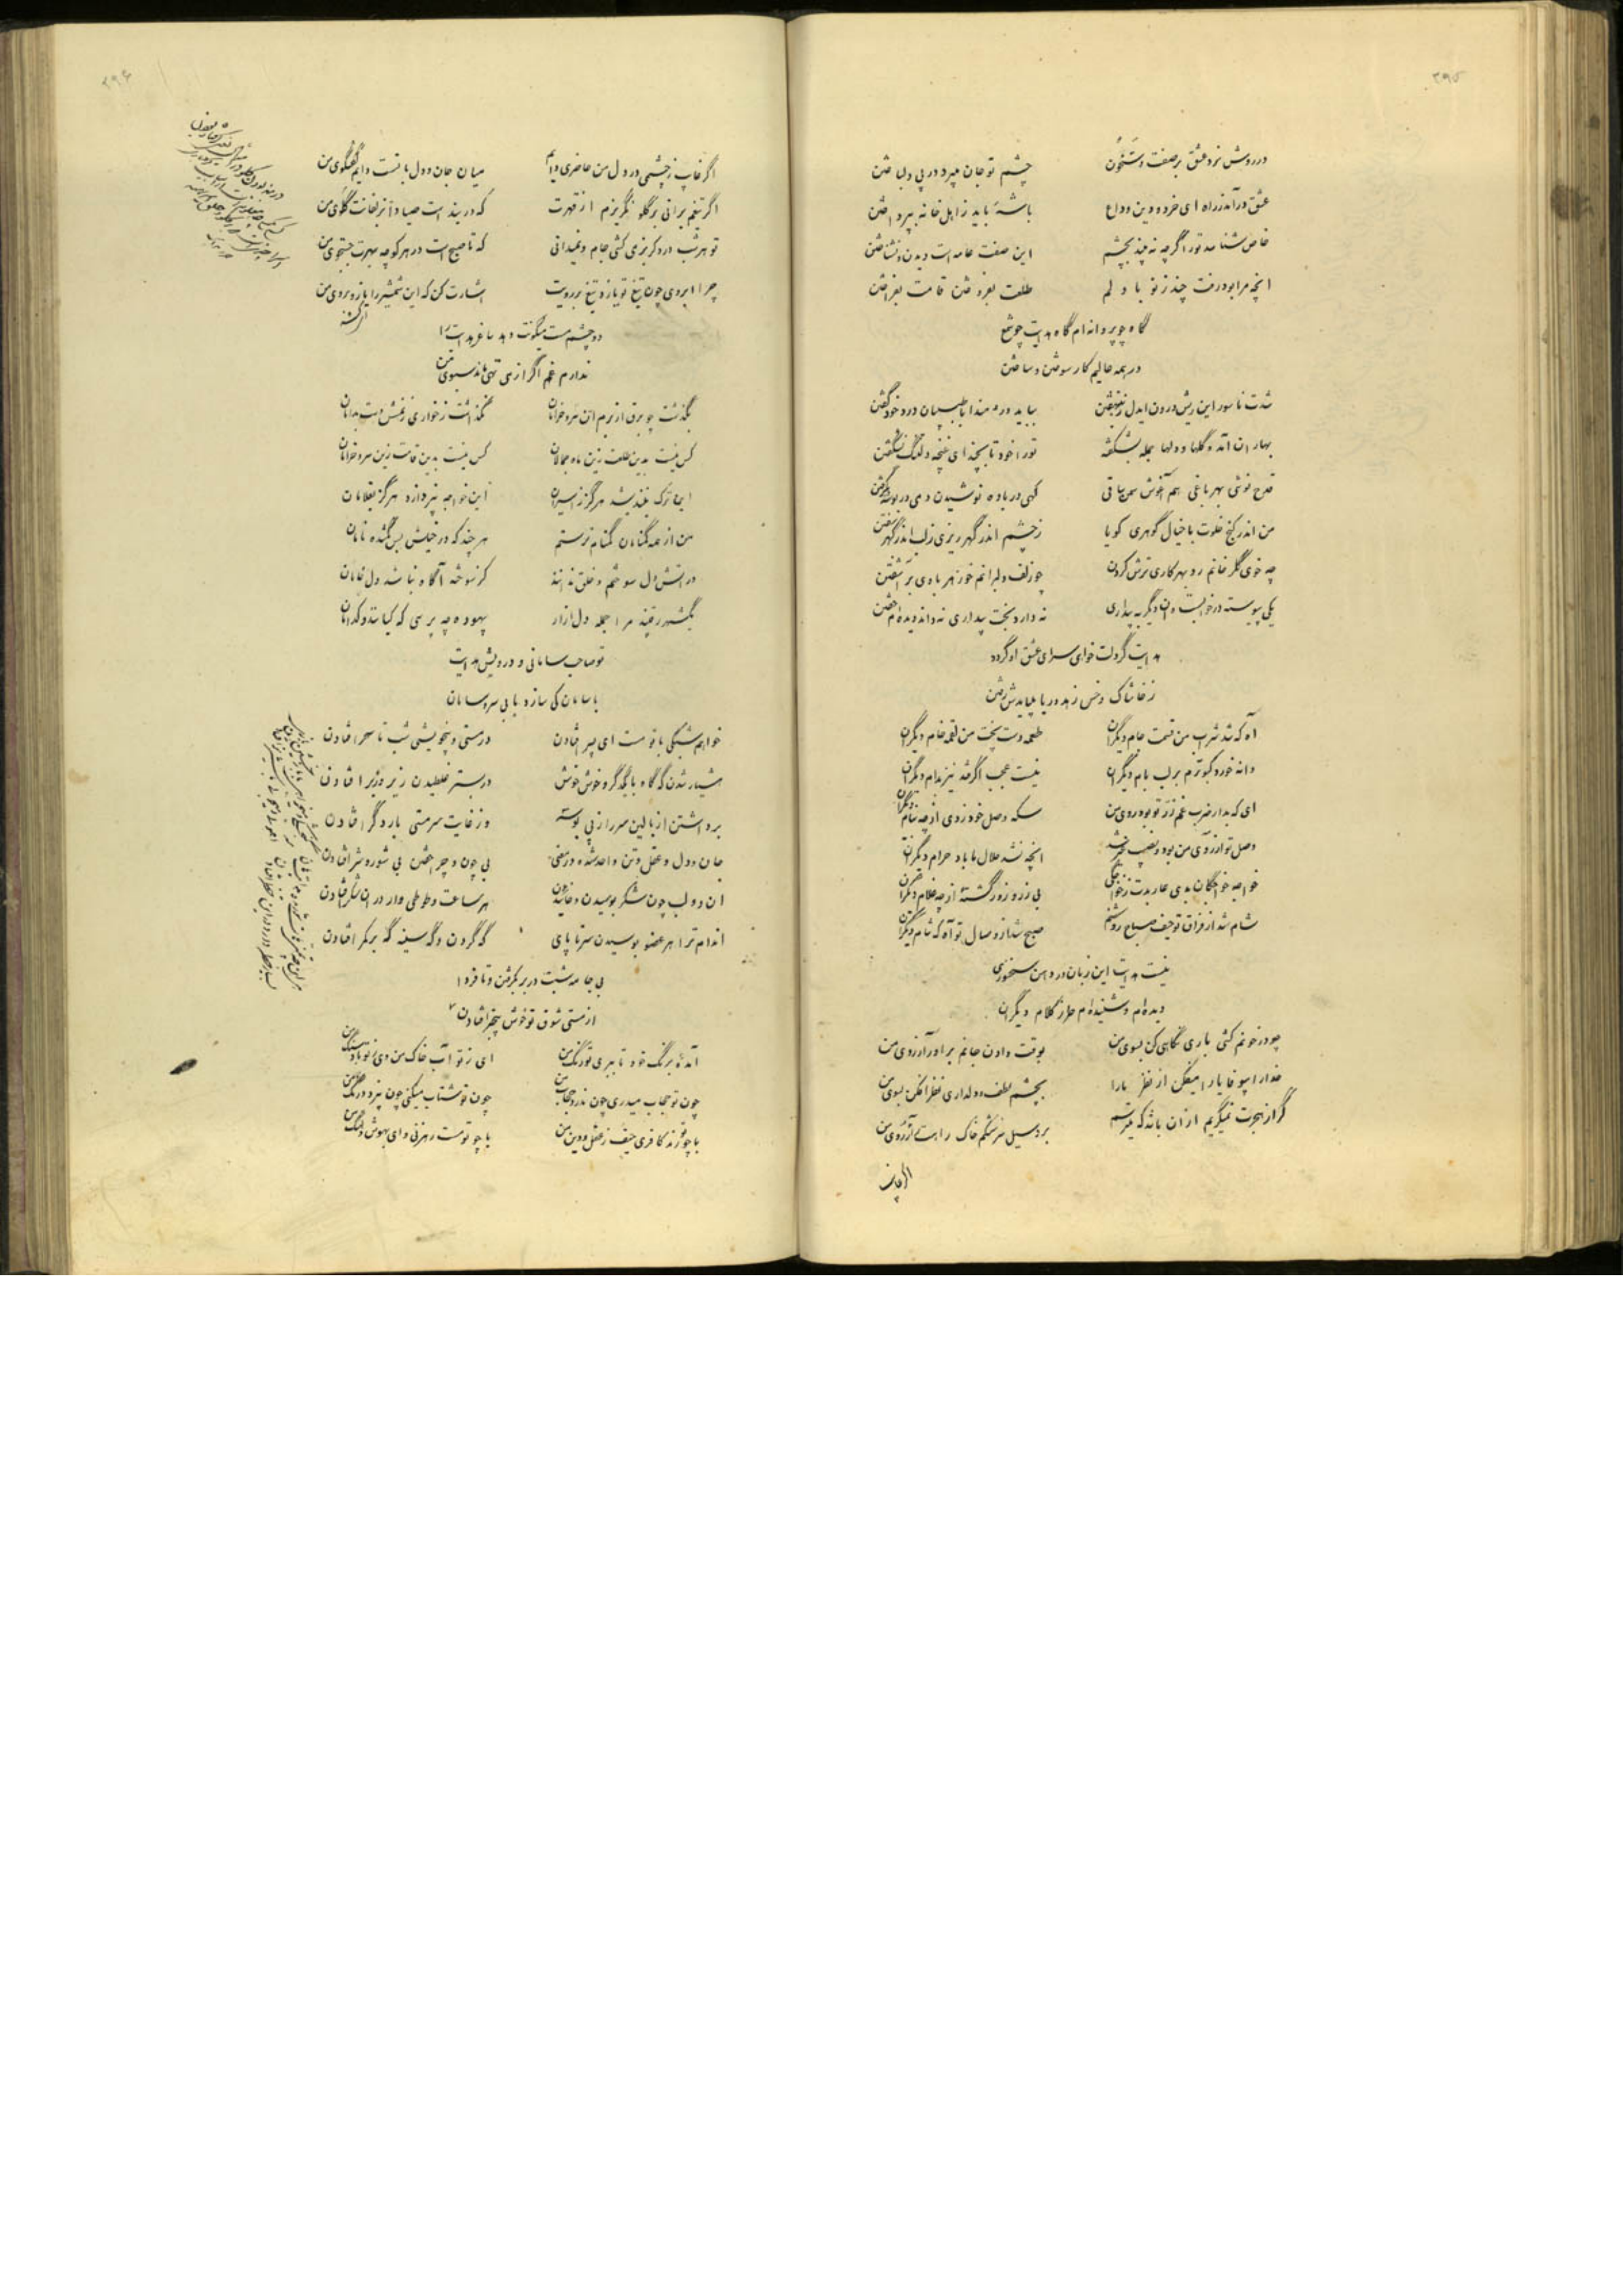 ۳۹۵
در روش نرد عشق بر صفت
چشم تو جان میبرد در پی دل باختن
عشق در آمد ز راه ای خرد و دین وداع
باشه باید ز اهل خانه بپرداختن
خاص شناسد تو را گرچه نه بیند بچشم
این صفت عامه است دیدن و نشناختن
انچه مرا بود رفت چند ز تو با دلم
طلعت بفروختن قامت بفراختن
گاه چو پروانه ام گاه هدایت چو شمع
در همه حالیم کار سوختن و ساختن
شدت ناسور این ریش درون ایدل ز ننهفتن
بباید درد مندا با طبیبان درد خود گفتن
بهاران آمد و گلها و دلها جمله بشکفته
تو را خود تا بچند ای غنچه دلتنگ نشکفتن
قدح نوشی بهر باغی هم آغوش سمن ساقی
گهی در باده نوشیدن دمی در بوسه بگرفتن
من اندر کنج خلوت با خیال گوهری گویا
ز چشم اندر گهر ریزی ز لب اندر گهر سفتن
چه خوی گلرخانم رو بهر کاری ترش کردن
چو زلف دلبرانم خوز هر بادی بر آشفتن
یکی پیوسته در خوابست و ان دیگر به بیداری
نه دارد بخت بیداری نه داند دیده ام خفتن
هدایت گر دلت خواهی سرای عشق او گردد
ز خاشاک و خس زهد و ریا میبایدش رفتن
آه که شد شراب من قسمت جام دیگران
طعمه دست پخت من لقمه خام دیگران
دانه خورد کبوترم بر لب بام دیگران
نیست عجب اگر فتد نیز بدام دیگران
ای که بدار ضرب غم زر ز تو بود روی من
سکه وصل خود زدی از چه بنام دیگران
وصل تو ارزوی من بود و نصیب غیر شد
انچه نشد حلال ما باد حرام دیگران
خواجه خواجگان بدی عار بدت ز خواجگی
بی زر و زور گشته از چه غلام دیگران
شام شد از فراق تو حیف صباح روشنم
صبح شد از وصال تو آه که شام دیگران
نیست هدایت این زبان در دهن سخنوری
دیده ام و شنیده ام طرز کلام دیگران
چو در خونم کشی باری نگاهی کن بسوی من
بوقت دادن جانم بر اور آرزوی من
خدا را بیوفا یارا میفکن از نظر ما را
بچشم لطف و دلداری نظر افکن بسوی من
گر از هجرت نمیگریم از ان باشد که میترسم
برد سیل سرشکم خاک راهت ز ارزوی من
اگر غایب
۳۹۶
اگر غایب ز چشمی در دل من حاضری دایم
میان جان و دل با تست دایم گفتگوی من
اگر تیغم برانی بر گلو نگریزم از قهرت
که در بند است صیادا بزلفانت گلوی من
تو هر شب در دگر بزمی کشی جام و نمیدانی
که تا صبح است در هر کوچه بهرت جستجوی من
چرا ابروی چون تیغ تو یازد تیغ بر رویت
اشارت کن که این شمشیر را یازد بروی من
دو چشم مست میگونت دهد ساغر هدایت را
ندارم غم اگر از می تهی ماند سبوی من
بگذشت چو برق از برم ان سرو خرامان
نگذاشت ز خواری زنمش دست بدامان
کس نیست بدین طلعت زین ماه جمالان
کس نیست بدین قامت زین سرو خرامان
این ترک نیندیشد هرگز ز اسیران
این خواجه نپردازد هرگز بغلامان
من از همه گمنامان گمنام ترستم
هر چند که در خیلش بس گمشده نامان
در اتش دل سوختم و خلق ندانند
کز سوخته آگاه نباشد دل خامان
یکشهر رقیبند مرا جمله دل ازار
بیهوده چه پرسی که کیانند و کدامان
تو صاحب سامانی و درویش هدایت
با سامان کی سازد با بی سر و سامان
خواهم شبکی با تو مست ای پسر افتادن
در مستی و بیخویشی شب تا سحر افتادن
هشیار شدن گه گاه با یکدگر و خوش خوش
در بستر غلطیدن زیر و زبر افتادن
برداشتن از بالین سر را ز پی بوسه
وز غایت سرمستی بار دگر افتادن
جان و دل و عقل و تن واحد شده در معنی
بی چون و چرا خفتن بی شور و شر افتادن
ان دو لب چون شکر بوسیدن و خائیدن
هر ساعت و طوطی وار در ان شکر افتادن
اندام ترا هر عضو بوسیدن سر تا پای
گه گردن و گه سینه گه بر کمر افتادن
بی جامه شبت در بر بگرفتن و تا فردا
از مستی شوق تو خوش بیخبر افتادن
آمده برنگ خود تا ببری تو رنگ من
ای ز تو آب خاک من وی ز تو باد سنگ من
چون تو حجاب میدری چون ندرد حجاب من
چون تو شتاب میکنی چون نبرد درنگ من
با چو تو رند کافری حیف ز عقل و دین من
با چو تو مست رهزنی وای بهوش و هنگ من